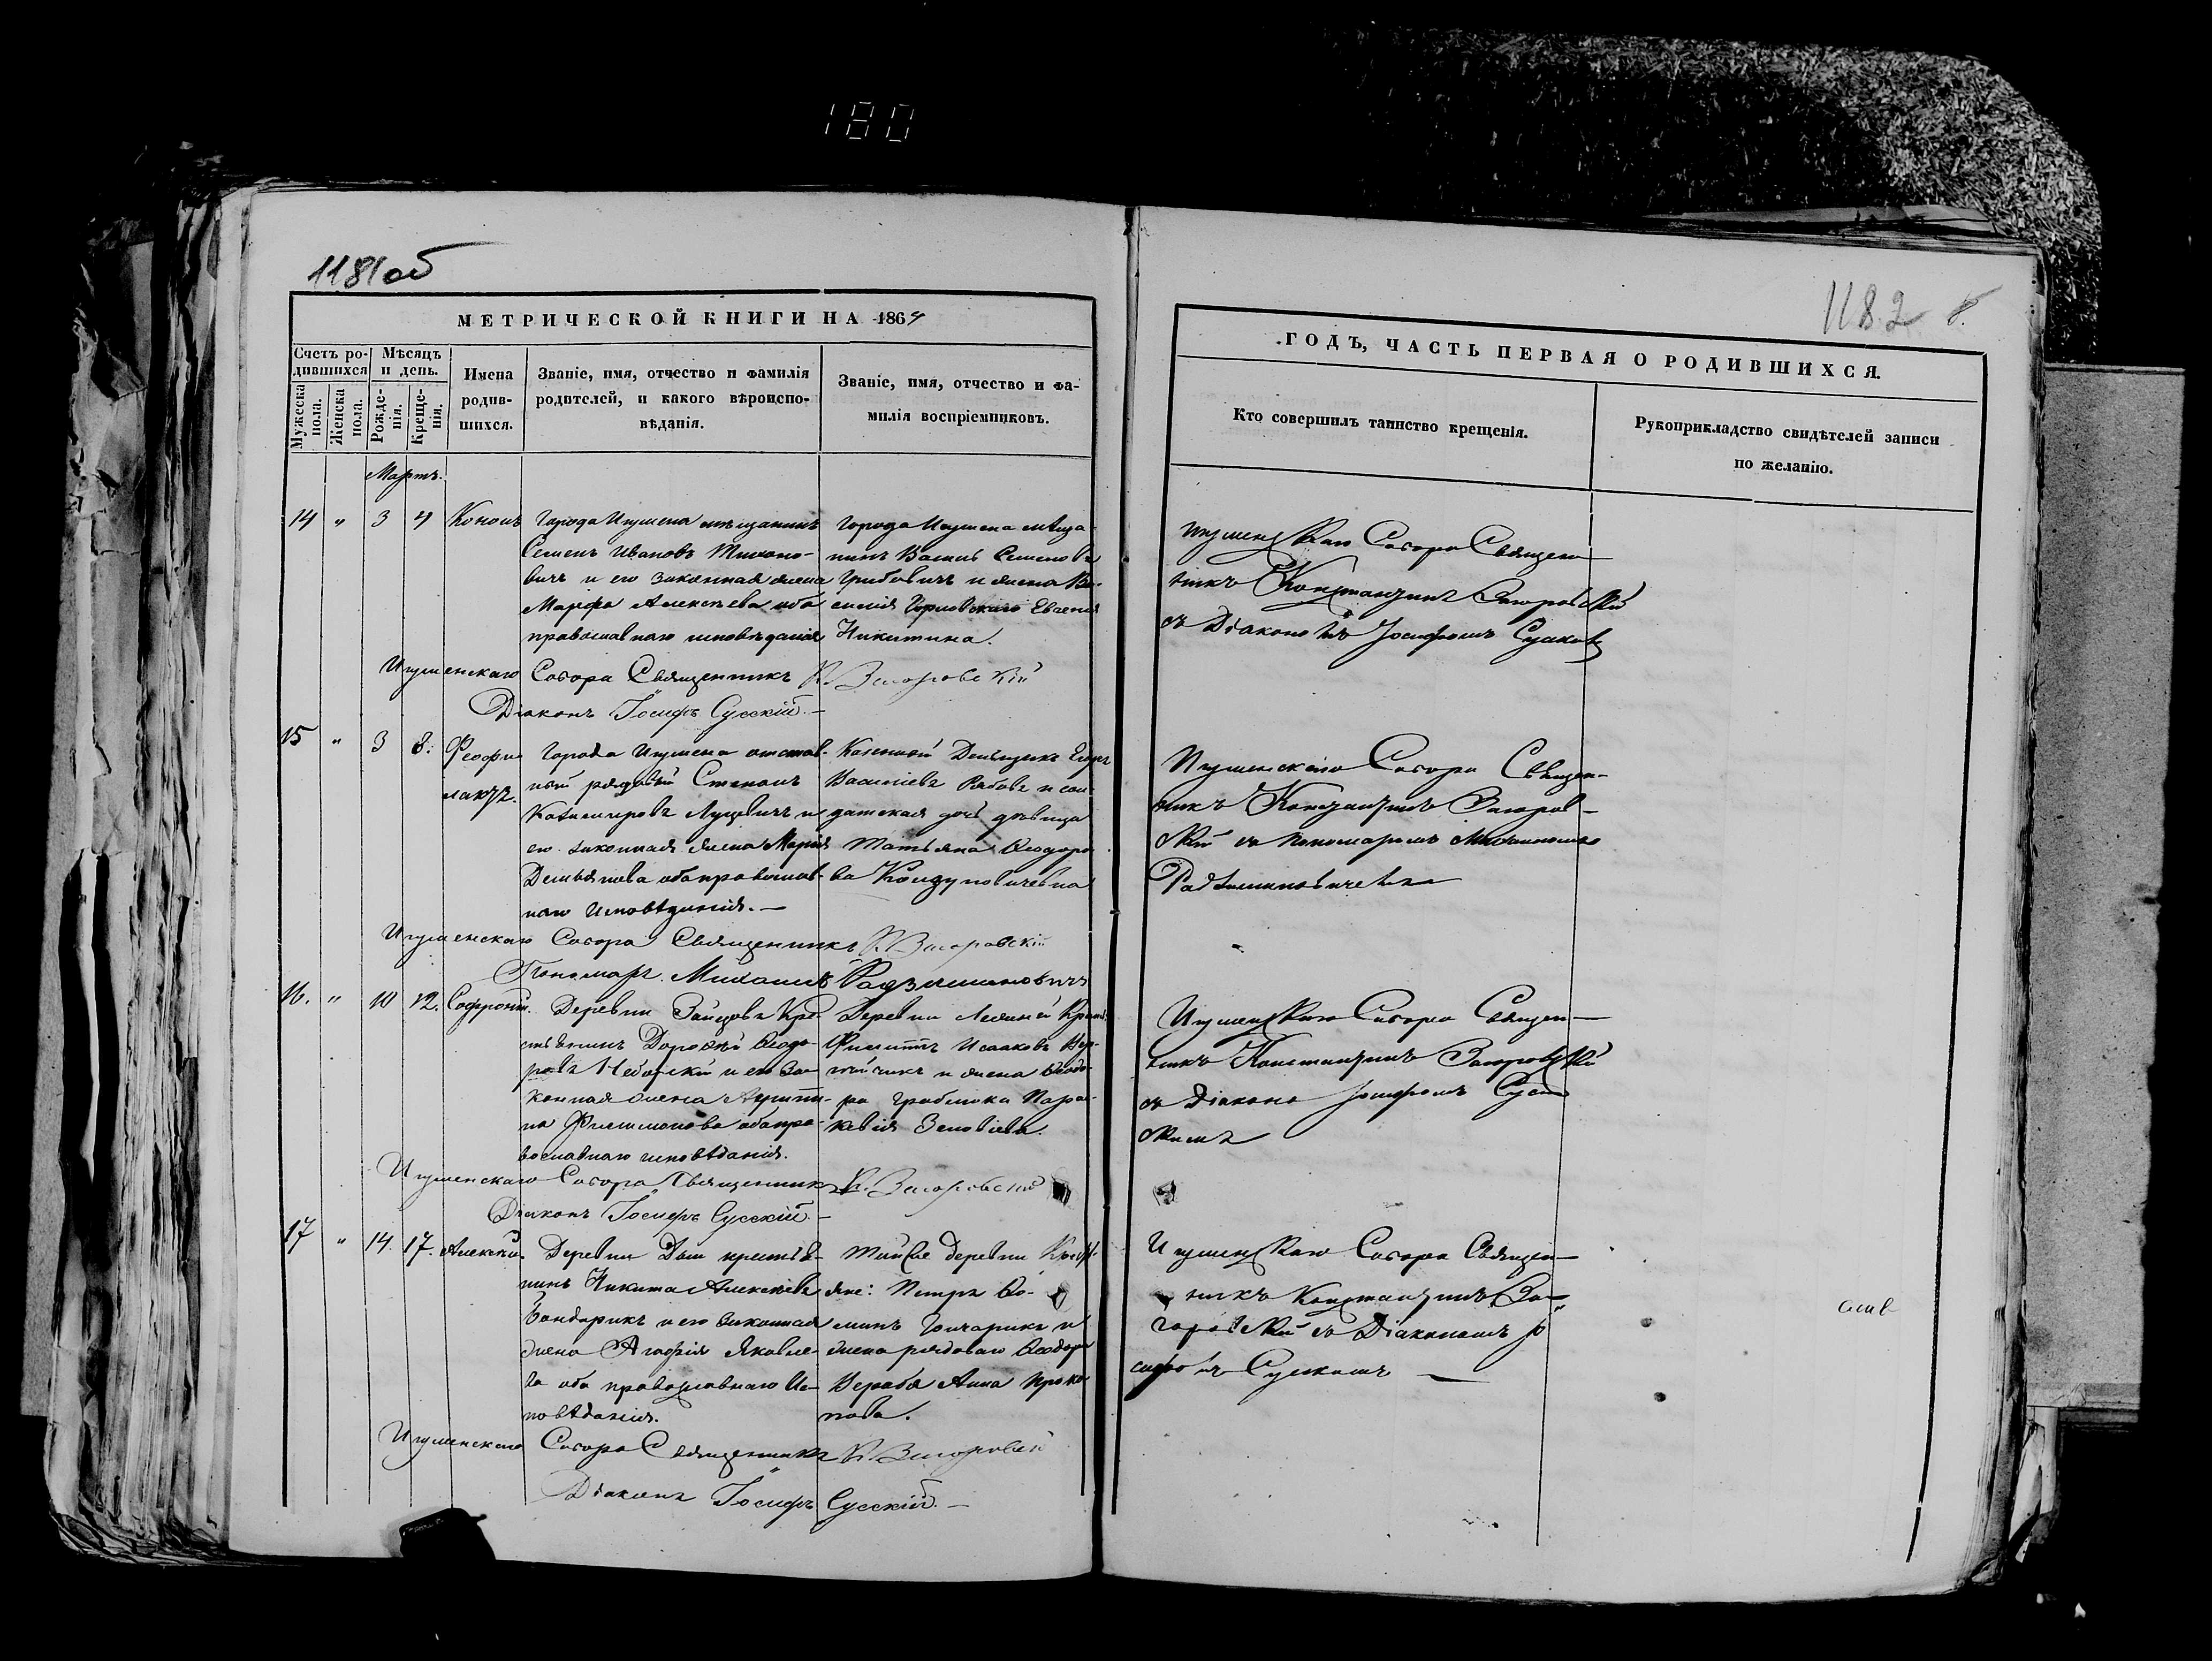 180
1181об
МЕТРИЧЕСКОЙ КНИГИ НА 1864
Счетъ ро-
дившихся
Мѣсяцъ
и день.
Мужеска
пола.
Женска
пола.
Рожде-
нія.
Креще-
нія.
Имена
родив-
шихся.
Званіе, имя, отчество и фамилія
родителей, и какого вѣроиспо-
вѣданія.
Званіе, имя, отчество и фа-
милія воспріемниковъ.
Мартъ.
14 " 3 4 Кононъ
Города Игумена мѣщанинъ
Семенъ Ивановъ Тихоно-
вичъ и его законная жена
Марфа Алексѣева оба
православнаго исповѣданія
Города Игумена мѣща-
нинъ Василій Семеновъ
Грибовичъ и жена Ва-
силія Евгенія
Никитина.
Игуменскаго Собора Священникъ К. Загоровскій
Діаконъ Іосифъ Сусскій. —
15 " 3 8. Феофи-
лактъ.
Города Игумена отстав-
ной рядовой Степанъ
Казимировъ Луцевичъ и
его законная жена Марія
Демьянова оба православ-
наго исповѣданія. —
Казенный Деньщикъ Егоръ
Васильевъ Рябовъ и сол-
датская дочь дѣвица
Татьяна Ѳеодоро-
ва
Игуменскаго Собора Священникъ К. Загоровскій
Пономарь Михаилъ Радзишановичъ
16. " 10 12. Софроній.
Деревни Зайцовъ Кре-
стьянинъ Дорофей Ѳеодо-
ровъ и его за-
конная жена Агрипи-
на Филимонова оба пра-
вославнаго исповѣданія.
Деревни Крест.
Филиппъ Исааковъ
и жена Ѳеодо-
ра Параске-
кевія Зеновіева.
Игуменскаго Собора Священникъ К. Загоровскій
Діаконъ Іосифъ Сусскій. —
17 " 14. 17. Алексѣй.
Деревни крестья-
нинъ Никита Алексѣевъ
Бондарикъ и его законная
жена Агафія Яковле-
ва оба православнаго Ис-
повѣданія.
Той же деревни Крестья-
не: Петръ Ѳо-
минъ Гончарикъ и
жена рядоваго Ѳеодора
Анна Проко-
пова.
Игуменскаго Собора Священникъ К. Загоровскій
Діаконъ Іосифъ Сусскій. —
1182 8.
ГОДЪ, ЧАСТЬ ПЕРВАЯ О РОДИВШИХСЯ.
Кто совершилъ таинство крещенія.
Рукоприкладство свидѣтелей записи
по желанію.
Игуменскаго Собора Священ-
никъ Константинъ Загоровскій
съ Діакономъ Іосифомъ
Игуменскаго Собора Священ-
никъ Константинъ Загоров-
скій съ пономаремъ Михаиломъ
Игуменскаго Собора Священ-
никъ Константинъ Загоровскій
съ Діакономъ Іосифомъ Сус-
скимъ
Игуменскаго Собора Священ-
никъ Константинъ За-
горовскій съ Діакономъ Іо-
сифомъ Сусскимъ —